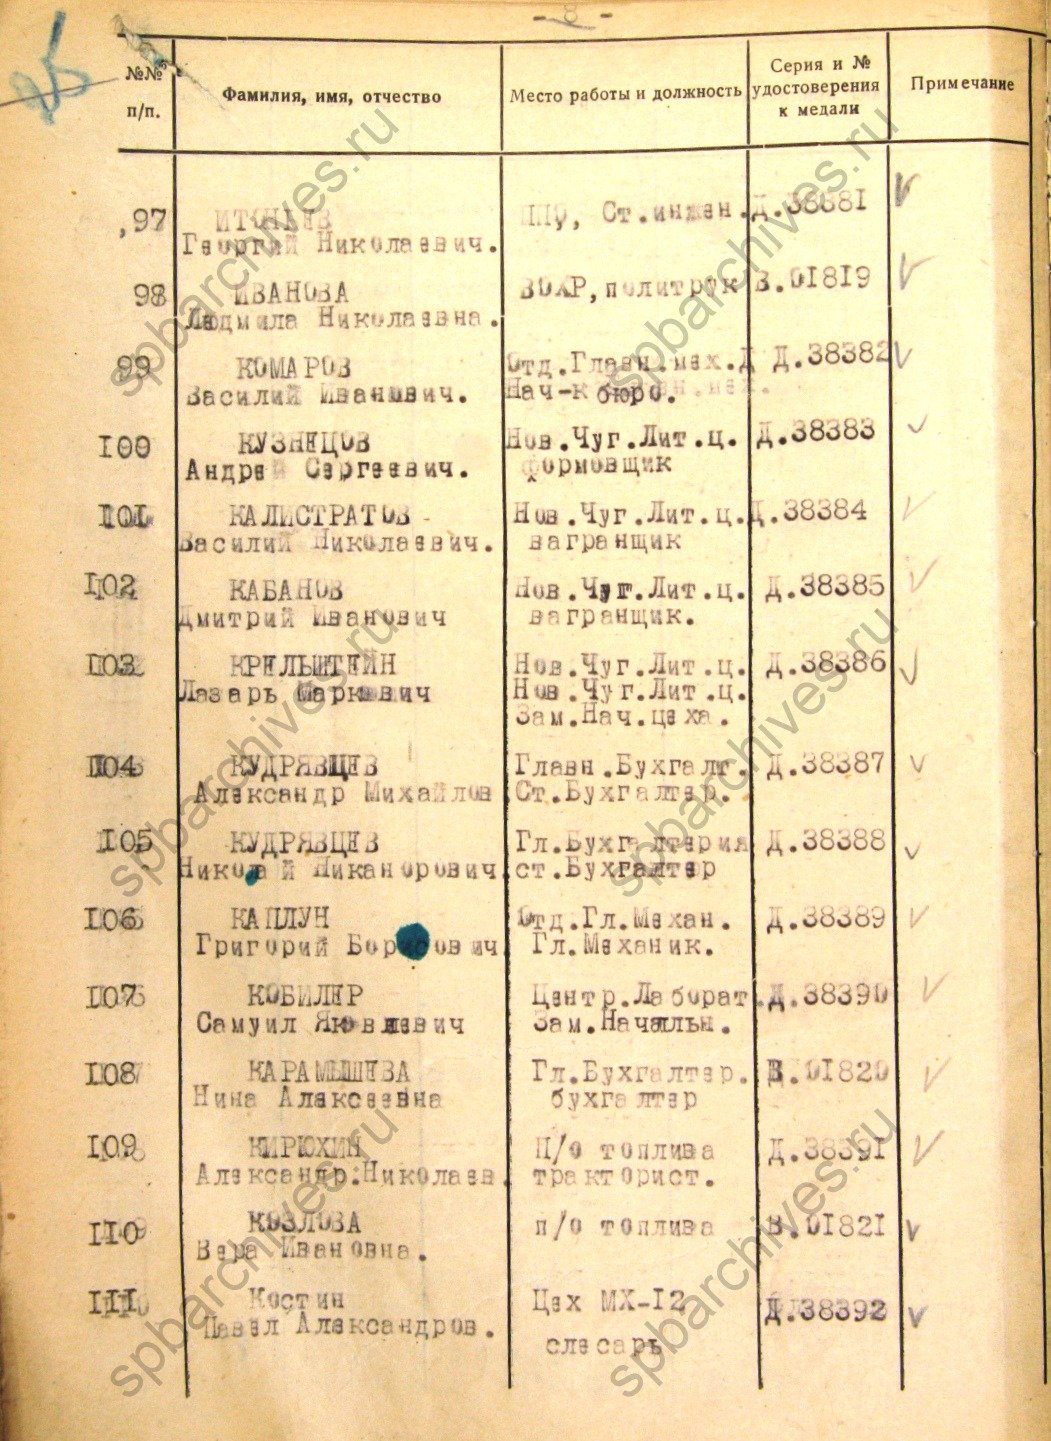 - 8 -
№№ п/п. Фамилия, имя, отчество Место работы и должность Серия и № удостоверения к медали Примечание
97 Д.38381
ППУ, Ст.инжен.
Георгий Николаевич.
98 ИВАНОВА ВОХР, политрук В.01819
Людмила Николаевна.
99 КОМАРОВ Отд.Главн.мех. Д.38382
Василий Иванович. Нач-к бюро.
100 КУЗНЕЦОВ Нов.Чуг.Лит.ц. Д.38383
Андрей Сергеевич. формовщик
101 КАЛИСТРАТОВ Нов.Чуг.Лит.ц. Д.38384
Василий Николаевич. вагранщик
102 КАБАНОВ Нов.Чуг.Лит.ц. Д.38385
Дмитрий Иванович вагранщик.
103 КРЕЛЬШТЕЙН Нов.Чуг.Лит.ц. Д.38386
Лазарь Маркович Нов.Чуг.Лит.ц.
Зам.Нач.цеха.
104 КУДРЯВЦЕВ Главн.Бухгалт. Д.38387
Александр Михайлов Ст.Бухгалтер.
105 КУДРЯВЦЕВ Гл.Бухгалтерия Д.38388
Николай Никанорович ст.Бухгалтер
106 КАПЛУН Отд.Гл.Механ. Д.38389
Григорий Борисович Гл.Механик.
107 КОБИЛЕР Центр.Лаборат. Д.38390
Самуил Яковлевич Зам.Начальн.
108 КАРАМЫШЕВА Гл.Бухгалтер. В.01820
Нина Алексеевна бухгалтер
109 КИРЮХИН П/о топлива Д.38391
Александр.Николаев. тракторист.
110 КОЗЛОВА п/о топлива В.01821
Вера Ивановна.
111 Костин Цех МХ-12 Д.38392
Павел Александров.
слесарь
spbarchives.ru
spbarchives.ru
spbarchives.ru
spbarchives.ru
spbarchives.ru
spbarchives.ru